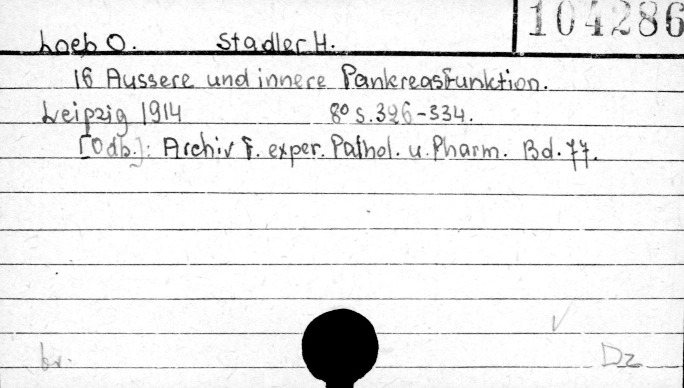 104286
Loeb O. Stadler H.
16 Äussere und innere Pankreasfunktion.
Leipzig 1914 8º s. 326-334.
[Odb.]: Archiv f. exper. Pathol. u. Pharm. Bd. 77.
br. Dz